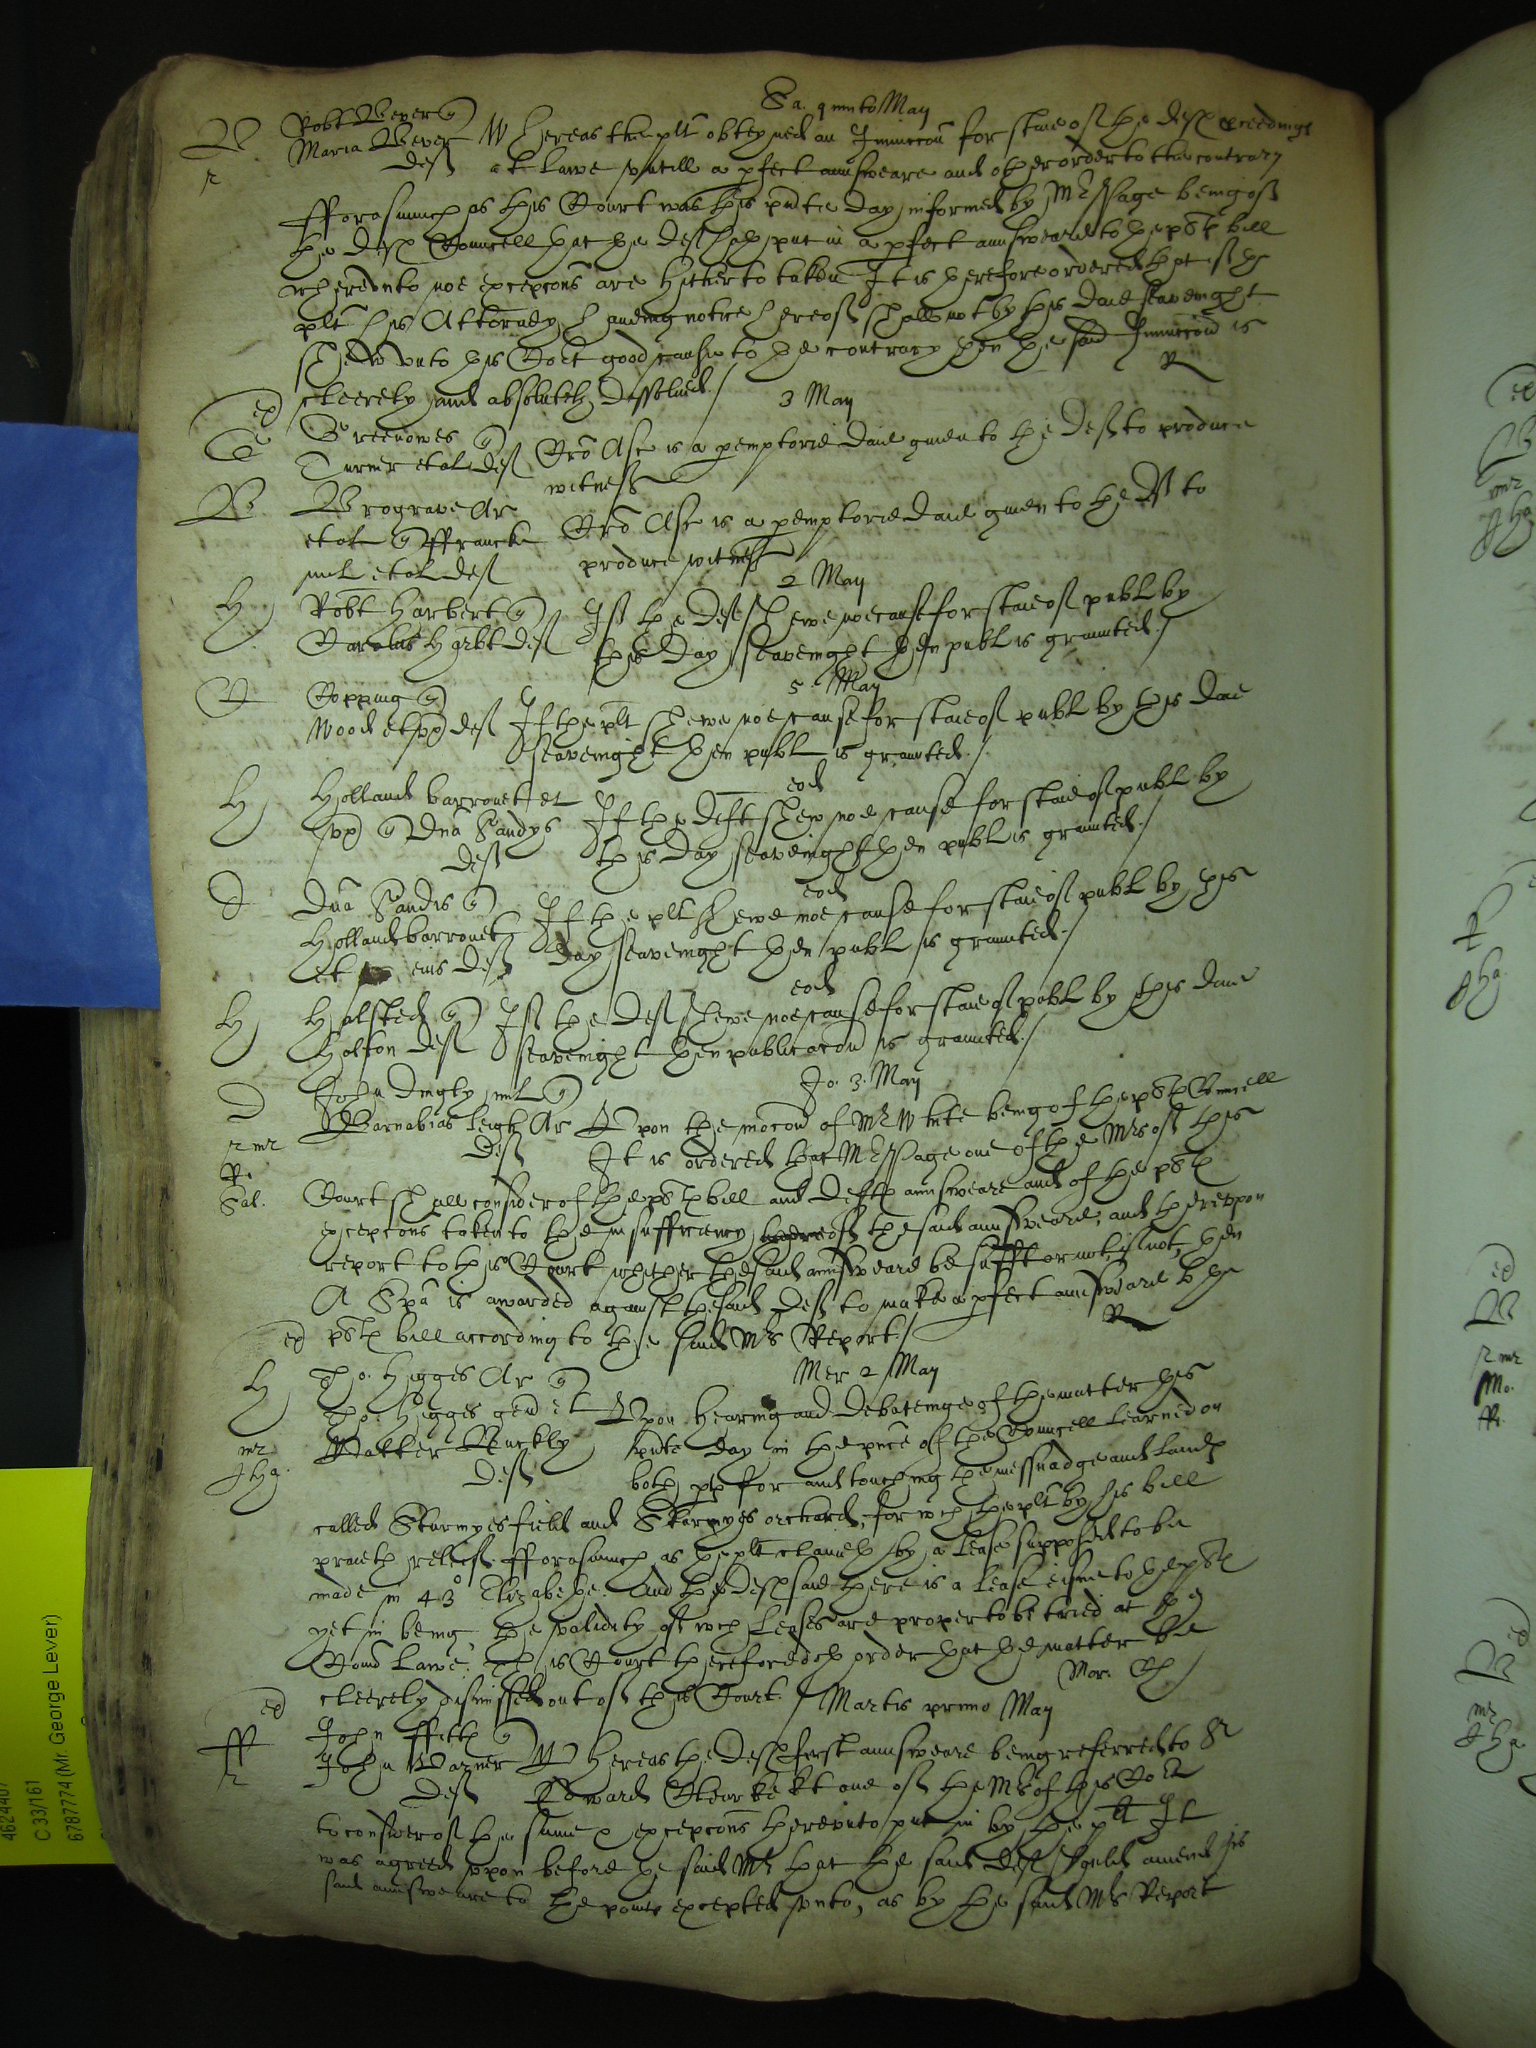 Sa. quinto May
V Robt Vever q
Maria Vever Whereas the plt obteyned an Iniunccon for staie of the defts proceedings
r deft at lawe vntill a pfect answeare and other order to the contrary
fforasmuch as this Court was this pnte day informed by Mr Page being of
the defts Councell that the deft hath put in a pfect answeare to the plts bill
wherevnto noe excepcons are hitherto taken It is therefore ordered that if the
plt his Attorney haueing notice hereof shall not by this daie seavenight
shew vnto this Cort good cause to the contrary then the said Iniunccon is
cleerely and absolutely dissolued./ R
ex 3 May
G Greenowes q
Turner et al deft Ord Ass is a pemptorie daie giuen to the deft to produce
witness
B Brograve Ar
et al q ffrancke Ord Ass is a pemptorie daie giuen to the plt to
mil et al deft produce witness
2 May
H Robt Harbert q If the deft shewe noe cause for staie of publ by
Carolus Harbt deft this day seavenight then publ is graunted./
5 May
C Copping q
Wood et vx deft If the plt shewe noe cause for staie of publ by this daie
seavenight then publ is graunted./
eod
H Holland barronet et If the deft shew noe cause for staie of publ by
vx q Dna Sandys this day seavenight then publ is graunted./
deft
eod
S Dna Sandis q If the plt shewe noe cause for staie of publ by this
Holland barronet day seavenight then publ is graunted./
et eius deft
eod
H Halsted q If the deft shewe noe cause for staie of publ by this daie
Holton deft seavenight then publicacon is graunted./
Jo. 3. May
D John Dingly mil q
r mr Barnabias Leigh Ar Vpon the mocon of Mr White being of the plts Councell
deft It is ordered that Mr Page one of the Mrs of this
Sal. Court shall consider of the plts bill and defts answeare and of the plts
excepcons taken to the insufficiency of the said answeare, and therevpon
report to this Court whether the said answeare be sufft or not, if not then
A Spa is awarded against the said deft to make a pfect answeare to the
ex plts bill according to the said Mrs Report./ R
Mer 2 May
H Tho: Higges Ar q
Tho: Higges gen et Vpon hearing and debateinge of the matter this
mr Walter Buckly pnte day in the pnce of the Councell learned on
Jha. deft both pts for and touching the messuadge and lands
called Sturmyes field and Sturmyes orchard, for wch the plt by his bill
praieth reliefe fforasmuch as the plt claimeth by a lease supposed to be
made in 43o Elizabethe. And the deft said there is a lease eigne to the plts
yet in being the validity of wch leases are proper to be tried at the
Comon Lawe. This Court therefore doth order that the matter be
cleerely dismissed out of this Court./ Mar. Ch
ex Martis primo May
ff John ffitts q
r John Varner Whereas the defts first answeare being referred to Sr
deft Edward Clearke kt one of the Mrs of this Cort
to consider of the same & excepcons therevnto put in by the plt It
was agreed vpon before the said Mr that the said deft should amend his
said answeare to the points excepted vnto, as by the said Mrs Report
4624407
C 33/161
6787774 (Mr George Lever)